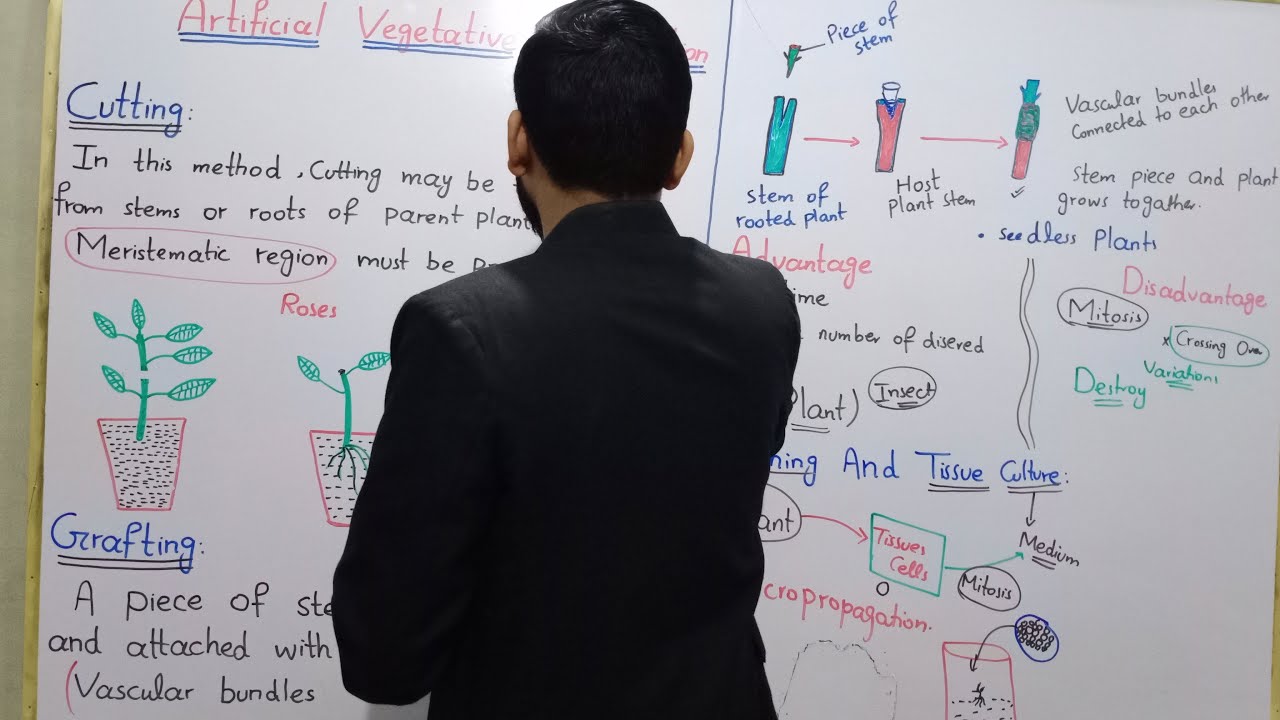 Artificial Vegetative
Cutting:
In this method, Cutting may be
from stems or roots of parent plant
Meristematic region must be
Roses
Grafting:
A piece of
and attached with
(Vascular bundles
Piece of
stem
stem of
rooted plant
Host
plant stem
Vascular bundles
Connected to each other
Stem piece and plant
grows togather.
• seedless Plants
Advantage
number of disered
Plant)
Insect
Disadvantage
Mitosis
x Crossing Over
Variations
Destroy
And Tissue Culture:
Tissues
Cells
Mitosis
Medium
cropropagation.